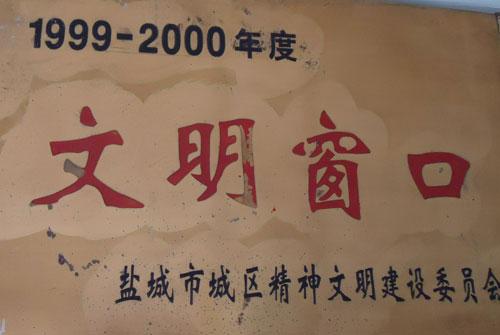 1999-2000年度
文明窗口
盐城市城区精神文明建设委员会